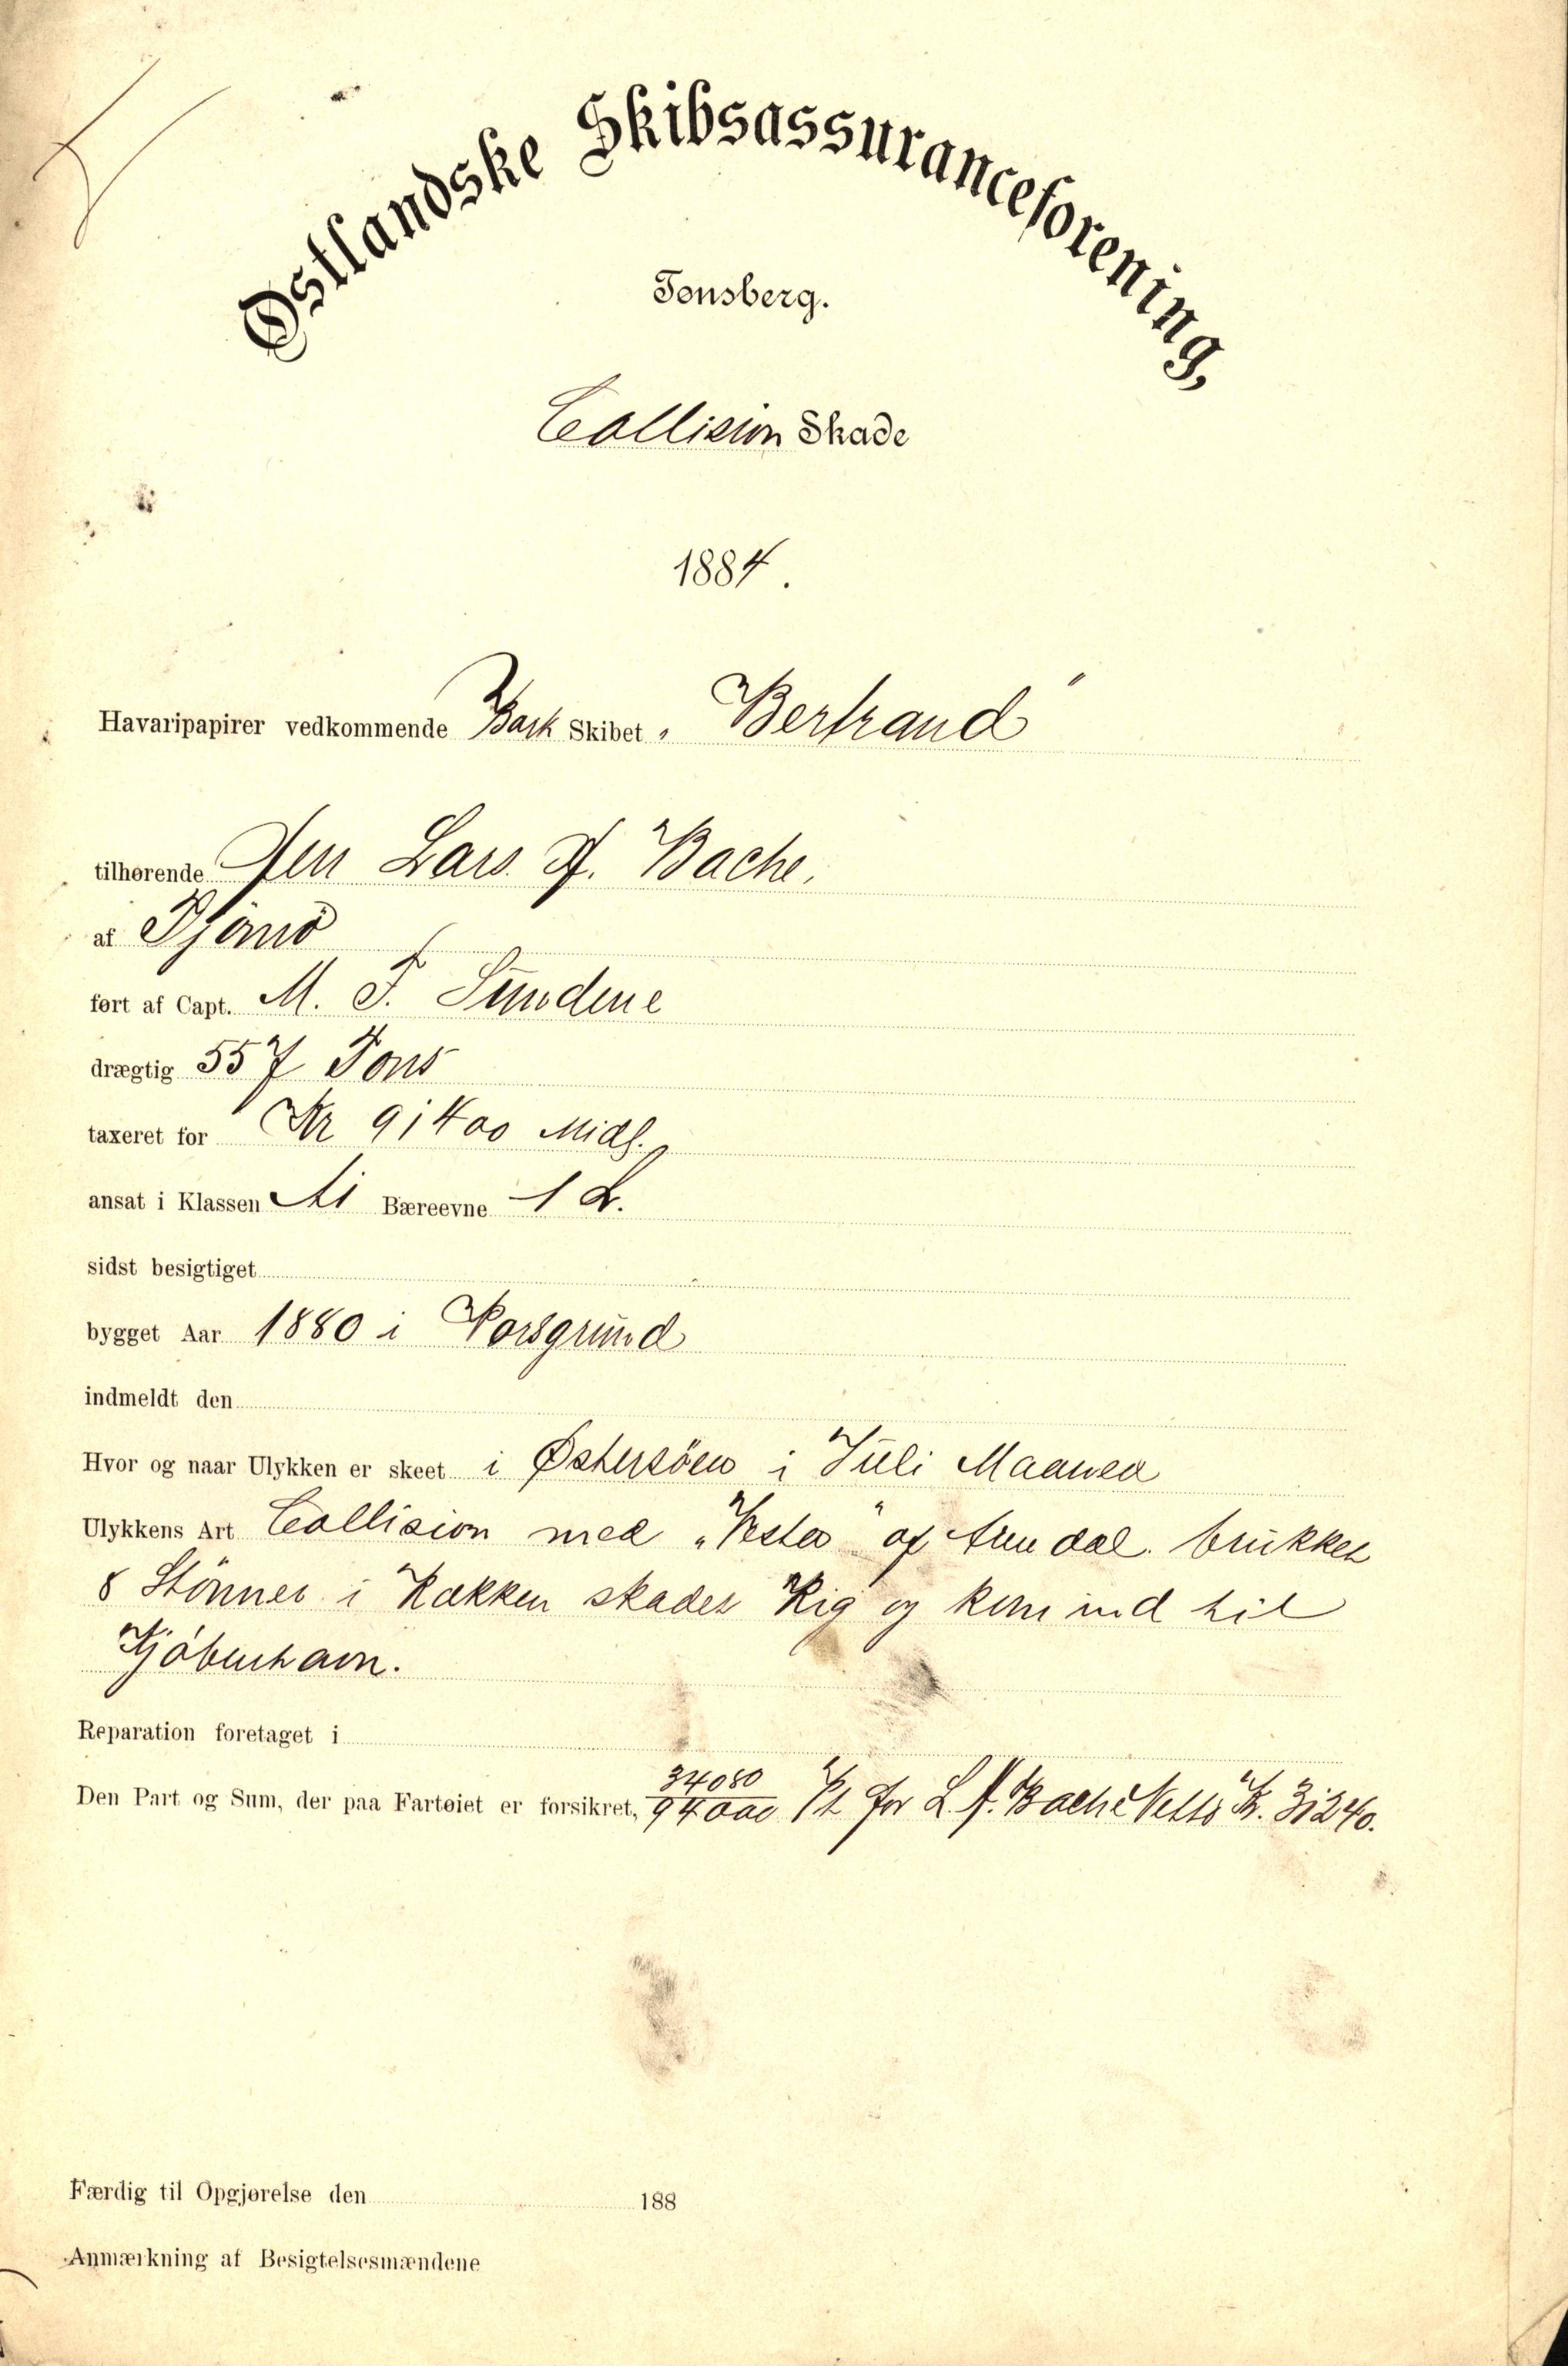 Østlandske Skibsassuranceforening,
Tønsberg.
Collision Skade
1884.
Havaripapirer vedkommende Bark Skibet „Bertrand"
tilhørende Herr Lars A. Bache.
af Tjömö
ført af Capt. M. F. Sundene
drægtig 557 Tons
taxeret for Kr 91400 Midl.
ansat i Klassen A1 Bæreevne 1 L.
sidst besigtiget
bygget Aar 1880 i Porsgrund
indmeldt den
Hvor og naar Ulykken er skeet i Østersöen i Juli Maaned
Ulykkens Art Collision med „Vesta" af Arendal. brukket
8 Stönner i Rækken skadet Rig og kom ind til
Kjöbenhavn.
Reparation foretaget i
Den Part og Sum, der paa Fartøiet er forsikret, 34080/94000 Pt for L. A. Bache Netto Kr. 31240.
Færdig til Opgjørelse den 188
Anmærkning af Besigtelsesmændene